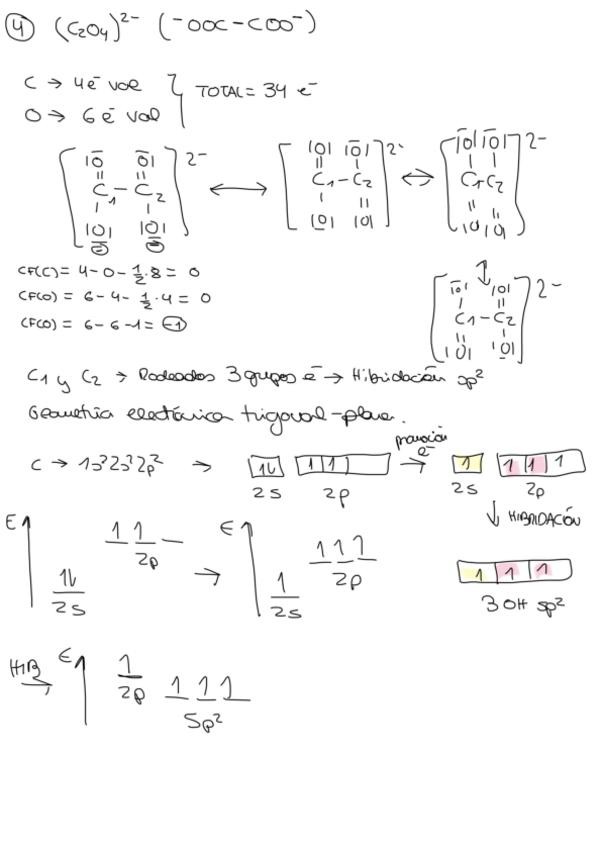 4 (C2O4)²⁻ (⁻OOC-COO⁻)
C → 4e⁻ val
O → 6 e⁻ val
TOTAL = 34 e⁻
[|O̅ O̅| C1-C2 |O̲| |O̲|]²⁻ ↔ [|O| |O̅| C1-C2 |O̲| |O|]²⁻ ↔ [|O̅| |O̅| C1-C2 |O| |O|]²⁻
⊖ ⊖
CF(C) = 4-0-½·8 = 0
CF(O) = 6-4-½·4 = 0
CF(O) = 6-6-1 = -1
↕
[|O̅| |O| C1-C2 |O| |O̲|]²⁻
C1 y C2 → Rodeados 3 grupos e⁻ → Hibridación sp²
Geometría electrónica trigonal-plana.
C → 1s²2s²2p² → 1⇂ 1 1 promoción e⁻ → 1 1 1 1
2s 2p 2s 2p
↓ HIBRIDACIÓN
E 1 1 2p 1⇂ 2s → E 1 1 1 2p 1 2s
1 1 1
3 OH sp²
HIB → E 1 2p 1 1 1 sp²